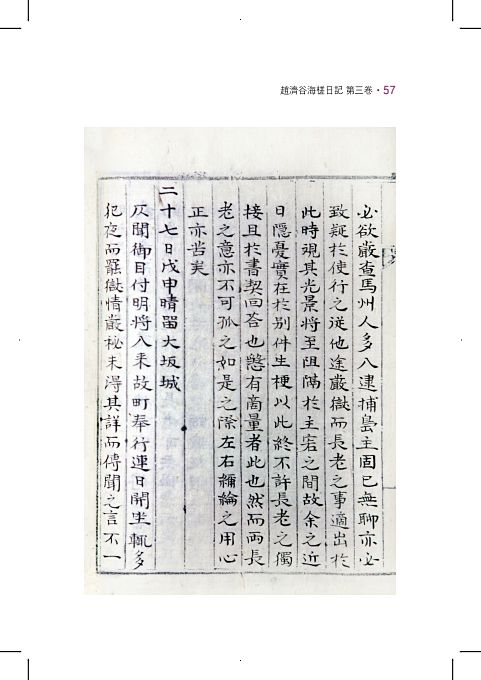 趙濟谷海槎日記 第三卷 • 57
必欲嚴查馬州人多入逮捕島主固已無聊亦必
致疑於使行之從他途嚴懲而長老之事適出於
此時視其光景將至阻隔於主客之間故余之近
日隱憂實在於別件生梗以此終不許長老之獨
接且於書契回答也慇有商量者此也然而兩長
老之意亦不可孤之如是之際左右彌綸之用心
正亦苦矣
二十七日戊申晴留大坂城
仄聞御目付明將入来故町奉行連日開坐輒多
犯夜而罷獄情嚴秘未得其詳而傳聞之言不一